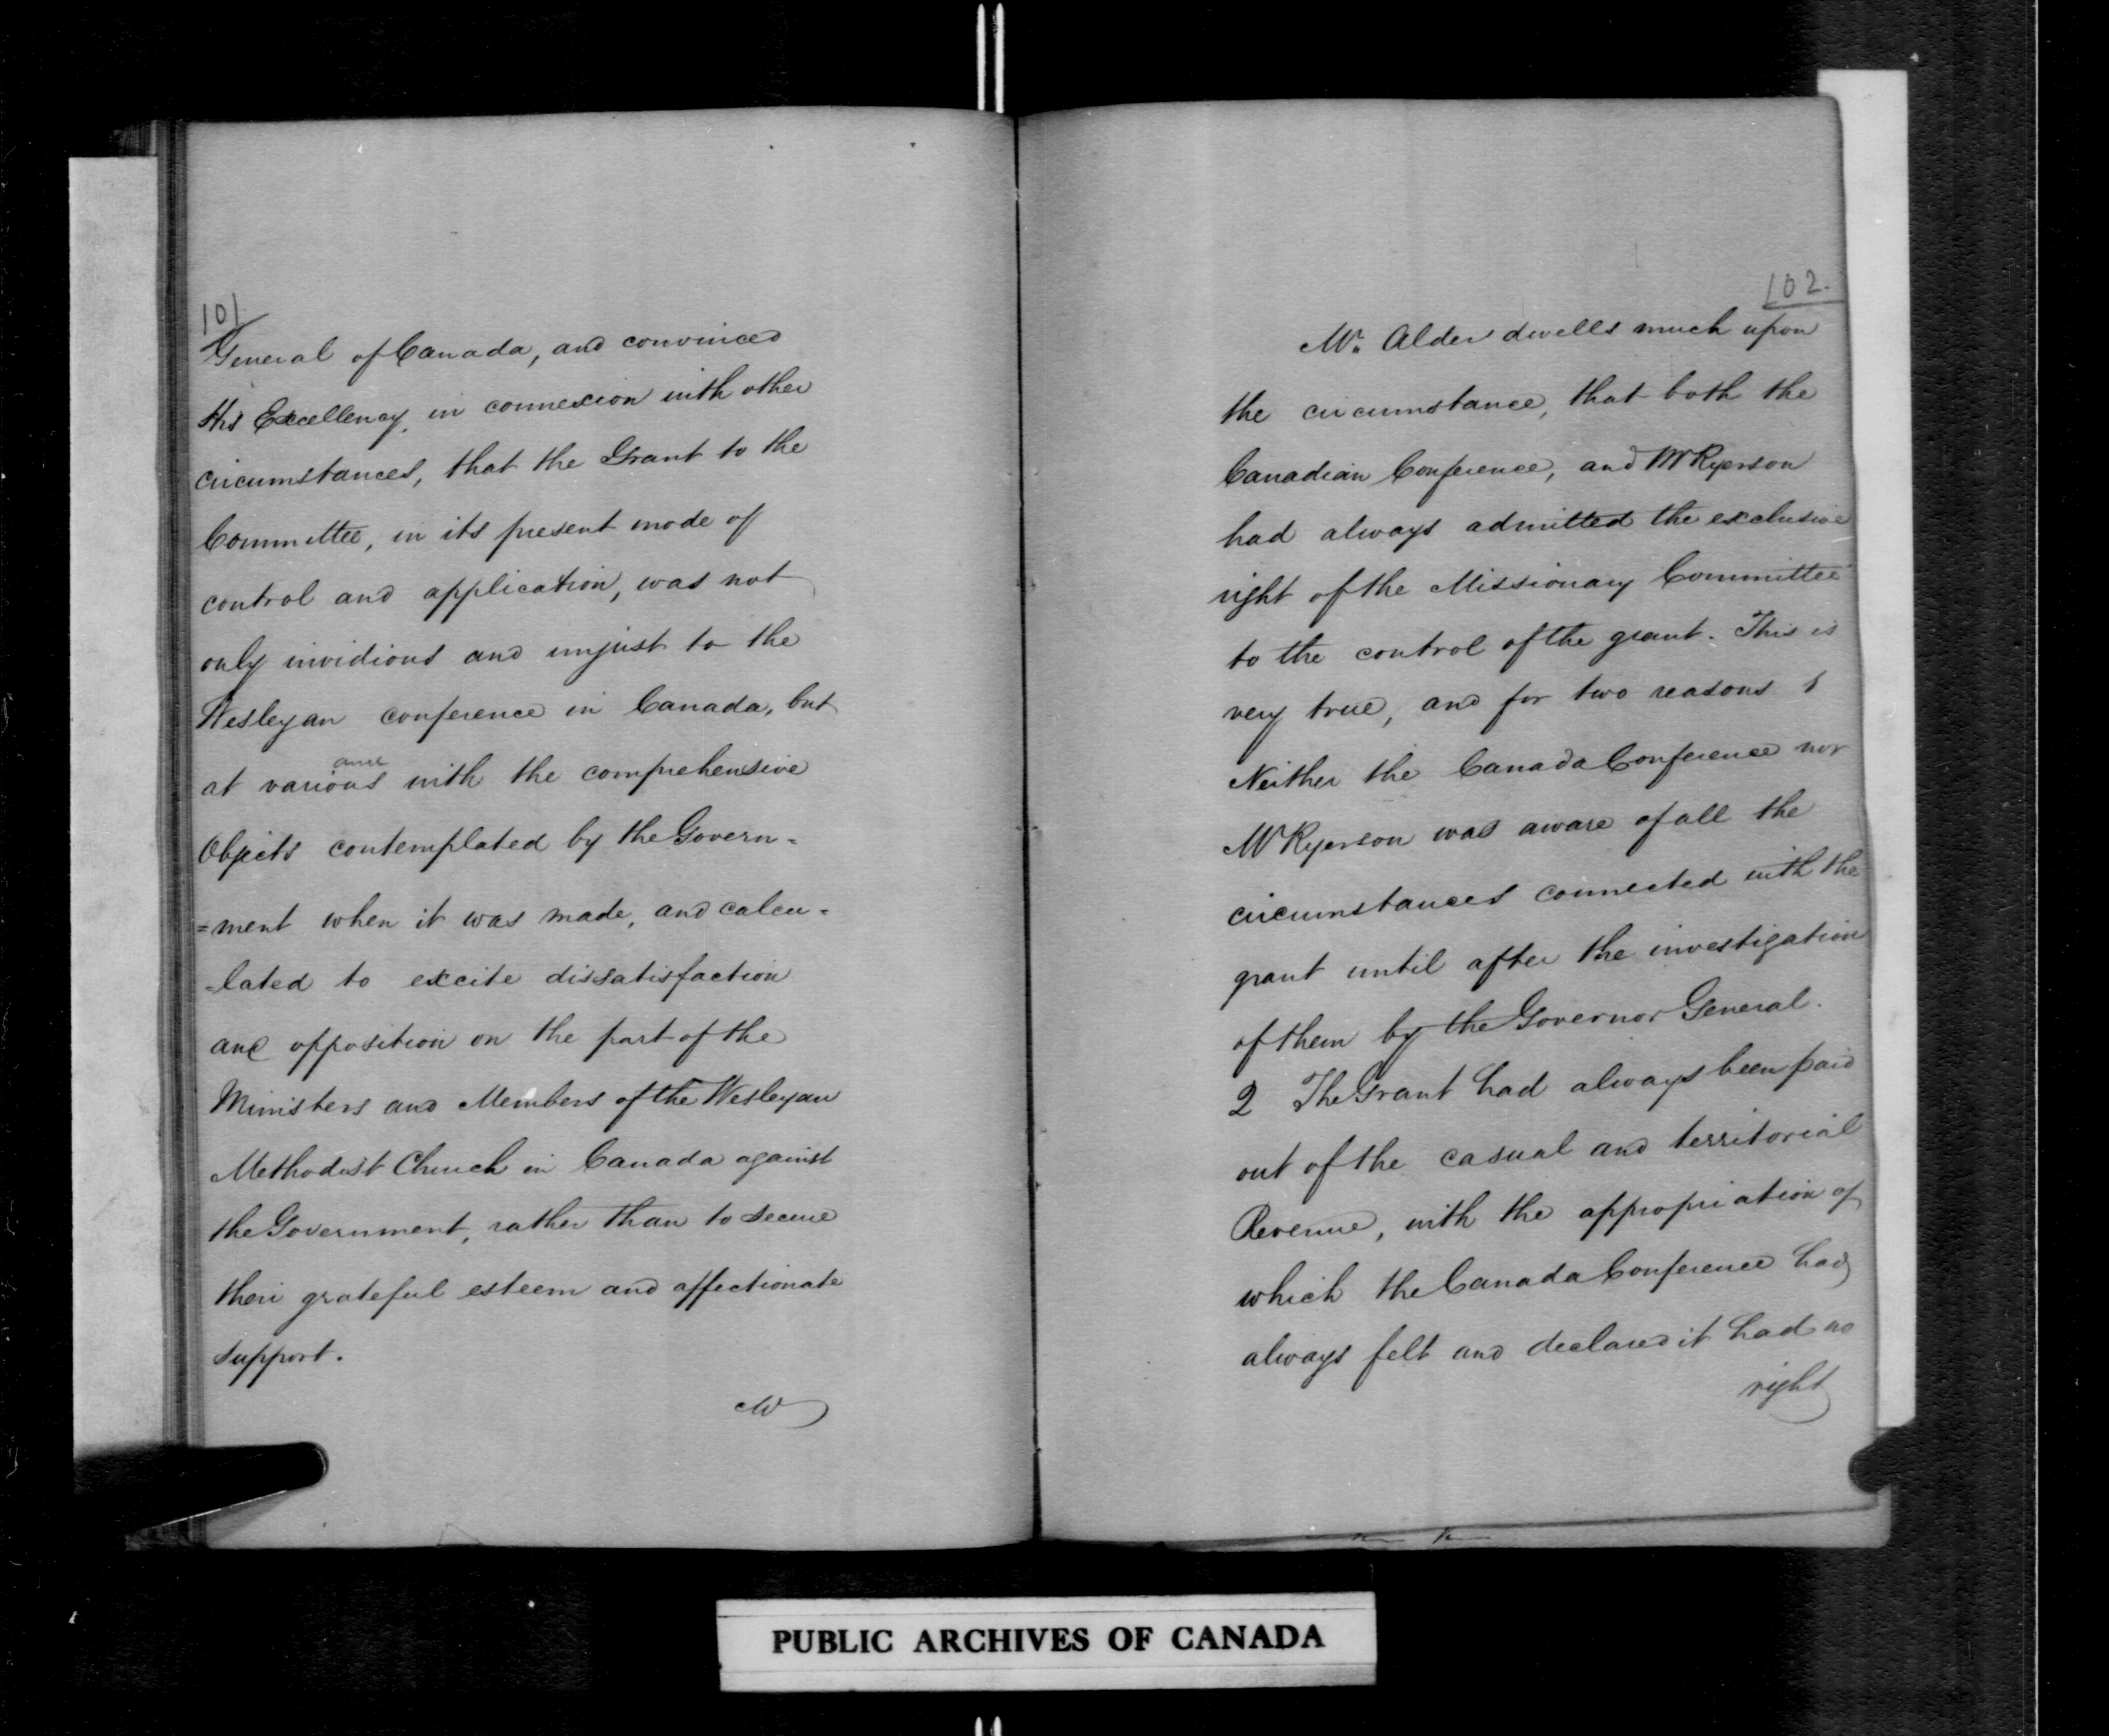 101
General of Canada, and convinced
His Excellency, in connexion with other
circumstances, that the Grant to the
Committee, in its present mode of
control and application, was not
only invidious and unjust to the
Wesleyan conference in Canada, but
ance
at various with the comprehensive
Objects contemplated by the Govern=
=ment when it was made, and calcu=
=lated to excite dissatisfaction
and opposition on the part of the
Ministers and Members of the Wesleyan
Methodist Church in Canada against
the Government, rather than to secure
their grateful esteem and affectionate
support.
Mr
102.
Mr. Alder dwells much upon
the circumstance, that both the
Canadian Conference, and Mr Ryerson
had always admitted the exclusive
right of the Missionary Committee
to the control of the grant. This is
very true, and for two reasons 1
Neither the Canada Conference nor
Mr Ryerson was aware of all the
circumstances connected with the
grant until after the investigation
of them by the Governor General.
2 The Grant had always been paid
out of the casual and territorial
Revenue, with the appropriation of
which the Canada Conference had
always felt and declared it had no
right
PUBLIC ARCHIVES OF CANADA